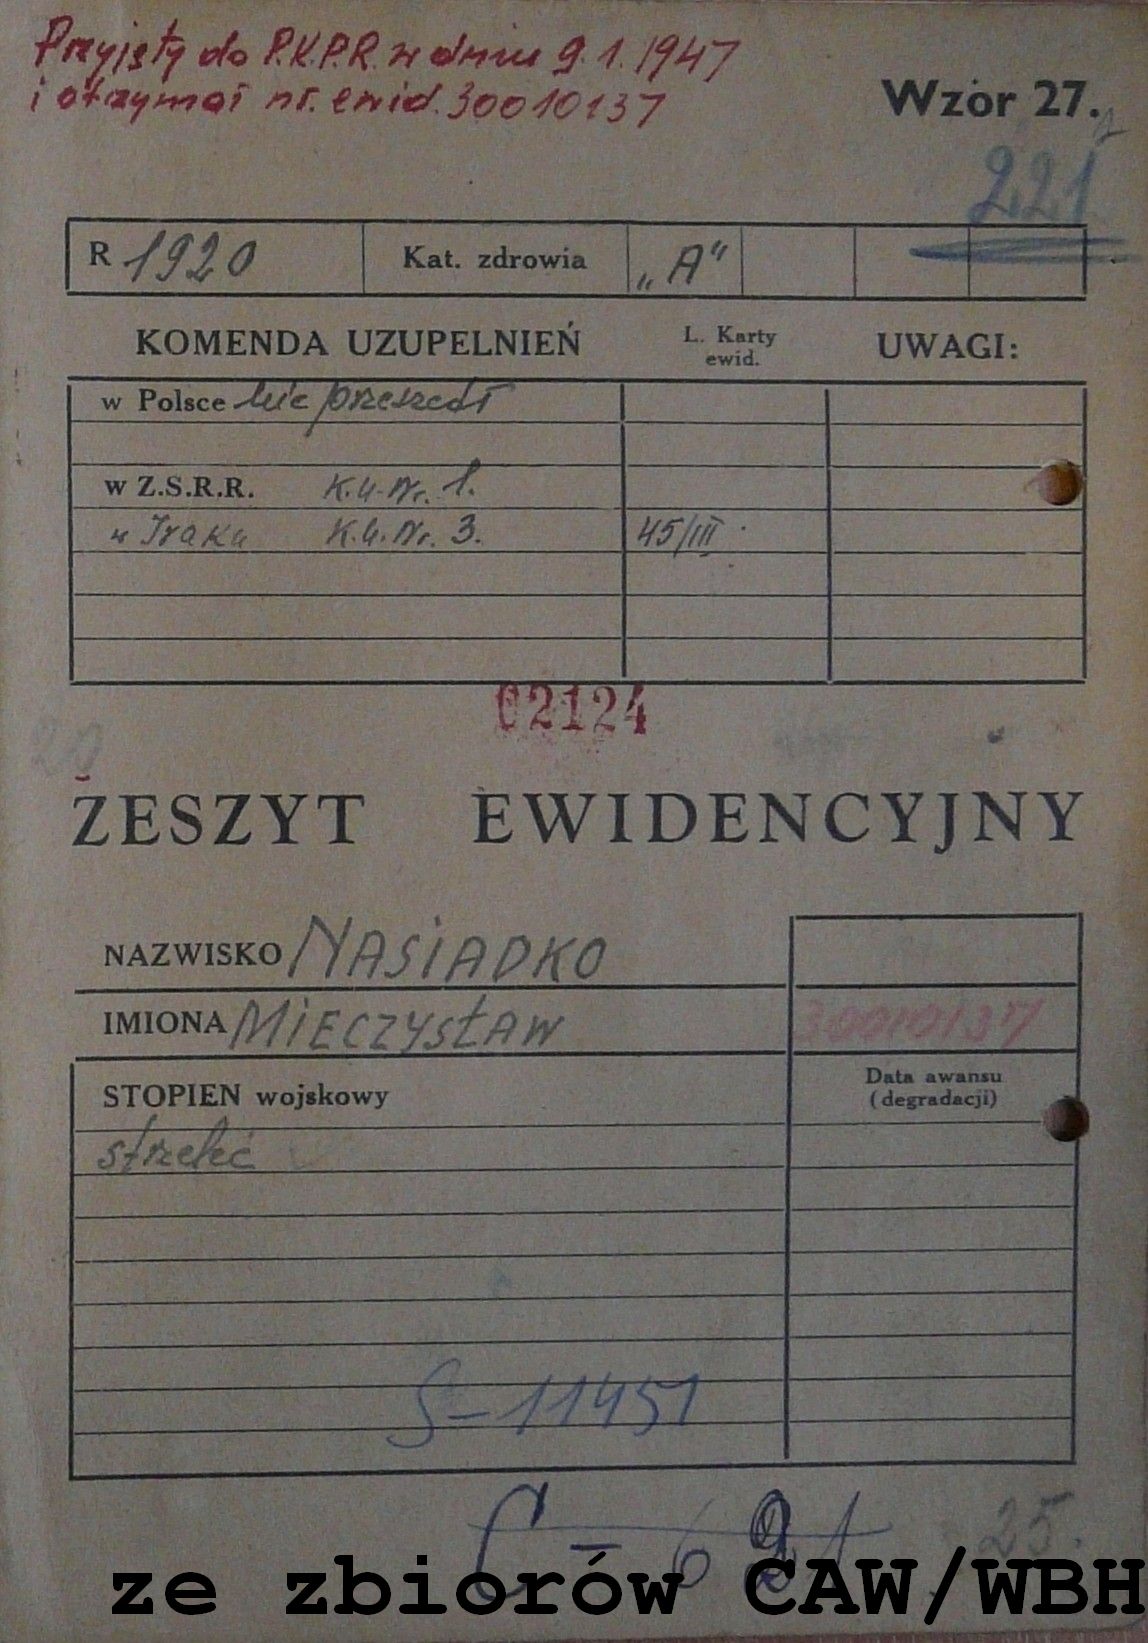 Przyjęty do P.K.P.R. w dniu 9.1.1947
i otrzymał nr. ewid. 30010137
Wzór 27.
221
R 1920 Kat. zdrowia „A"
KOMENDA UZUPEŁNIEŃ L. Karty ewid. UWAGI:
w Polsce nie przeszedł
w Z.S.R.R. K.U. Nr. 1.
w Iraku K.U. Nr. 3. 45/III
02124
20
ZESZYT EWIDENCYJNY
NAZWISKO NASIADKO
IMIONA MIECZYSŁAW 30010137
STOPIEN wojskowy Data awansu
(degradacji)
strzelec
S-11451
25.
ze zbiorów CAW/WBH